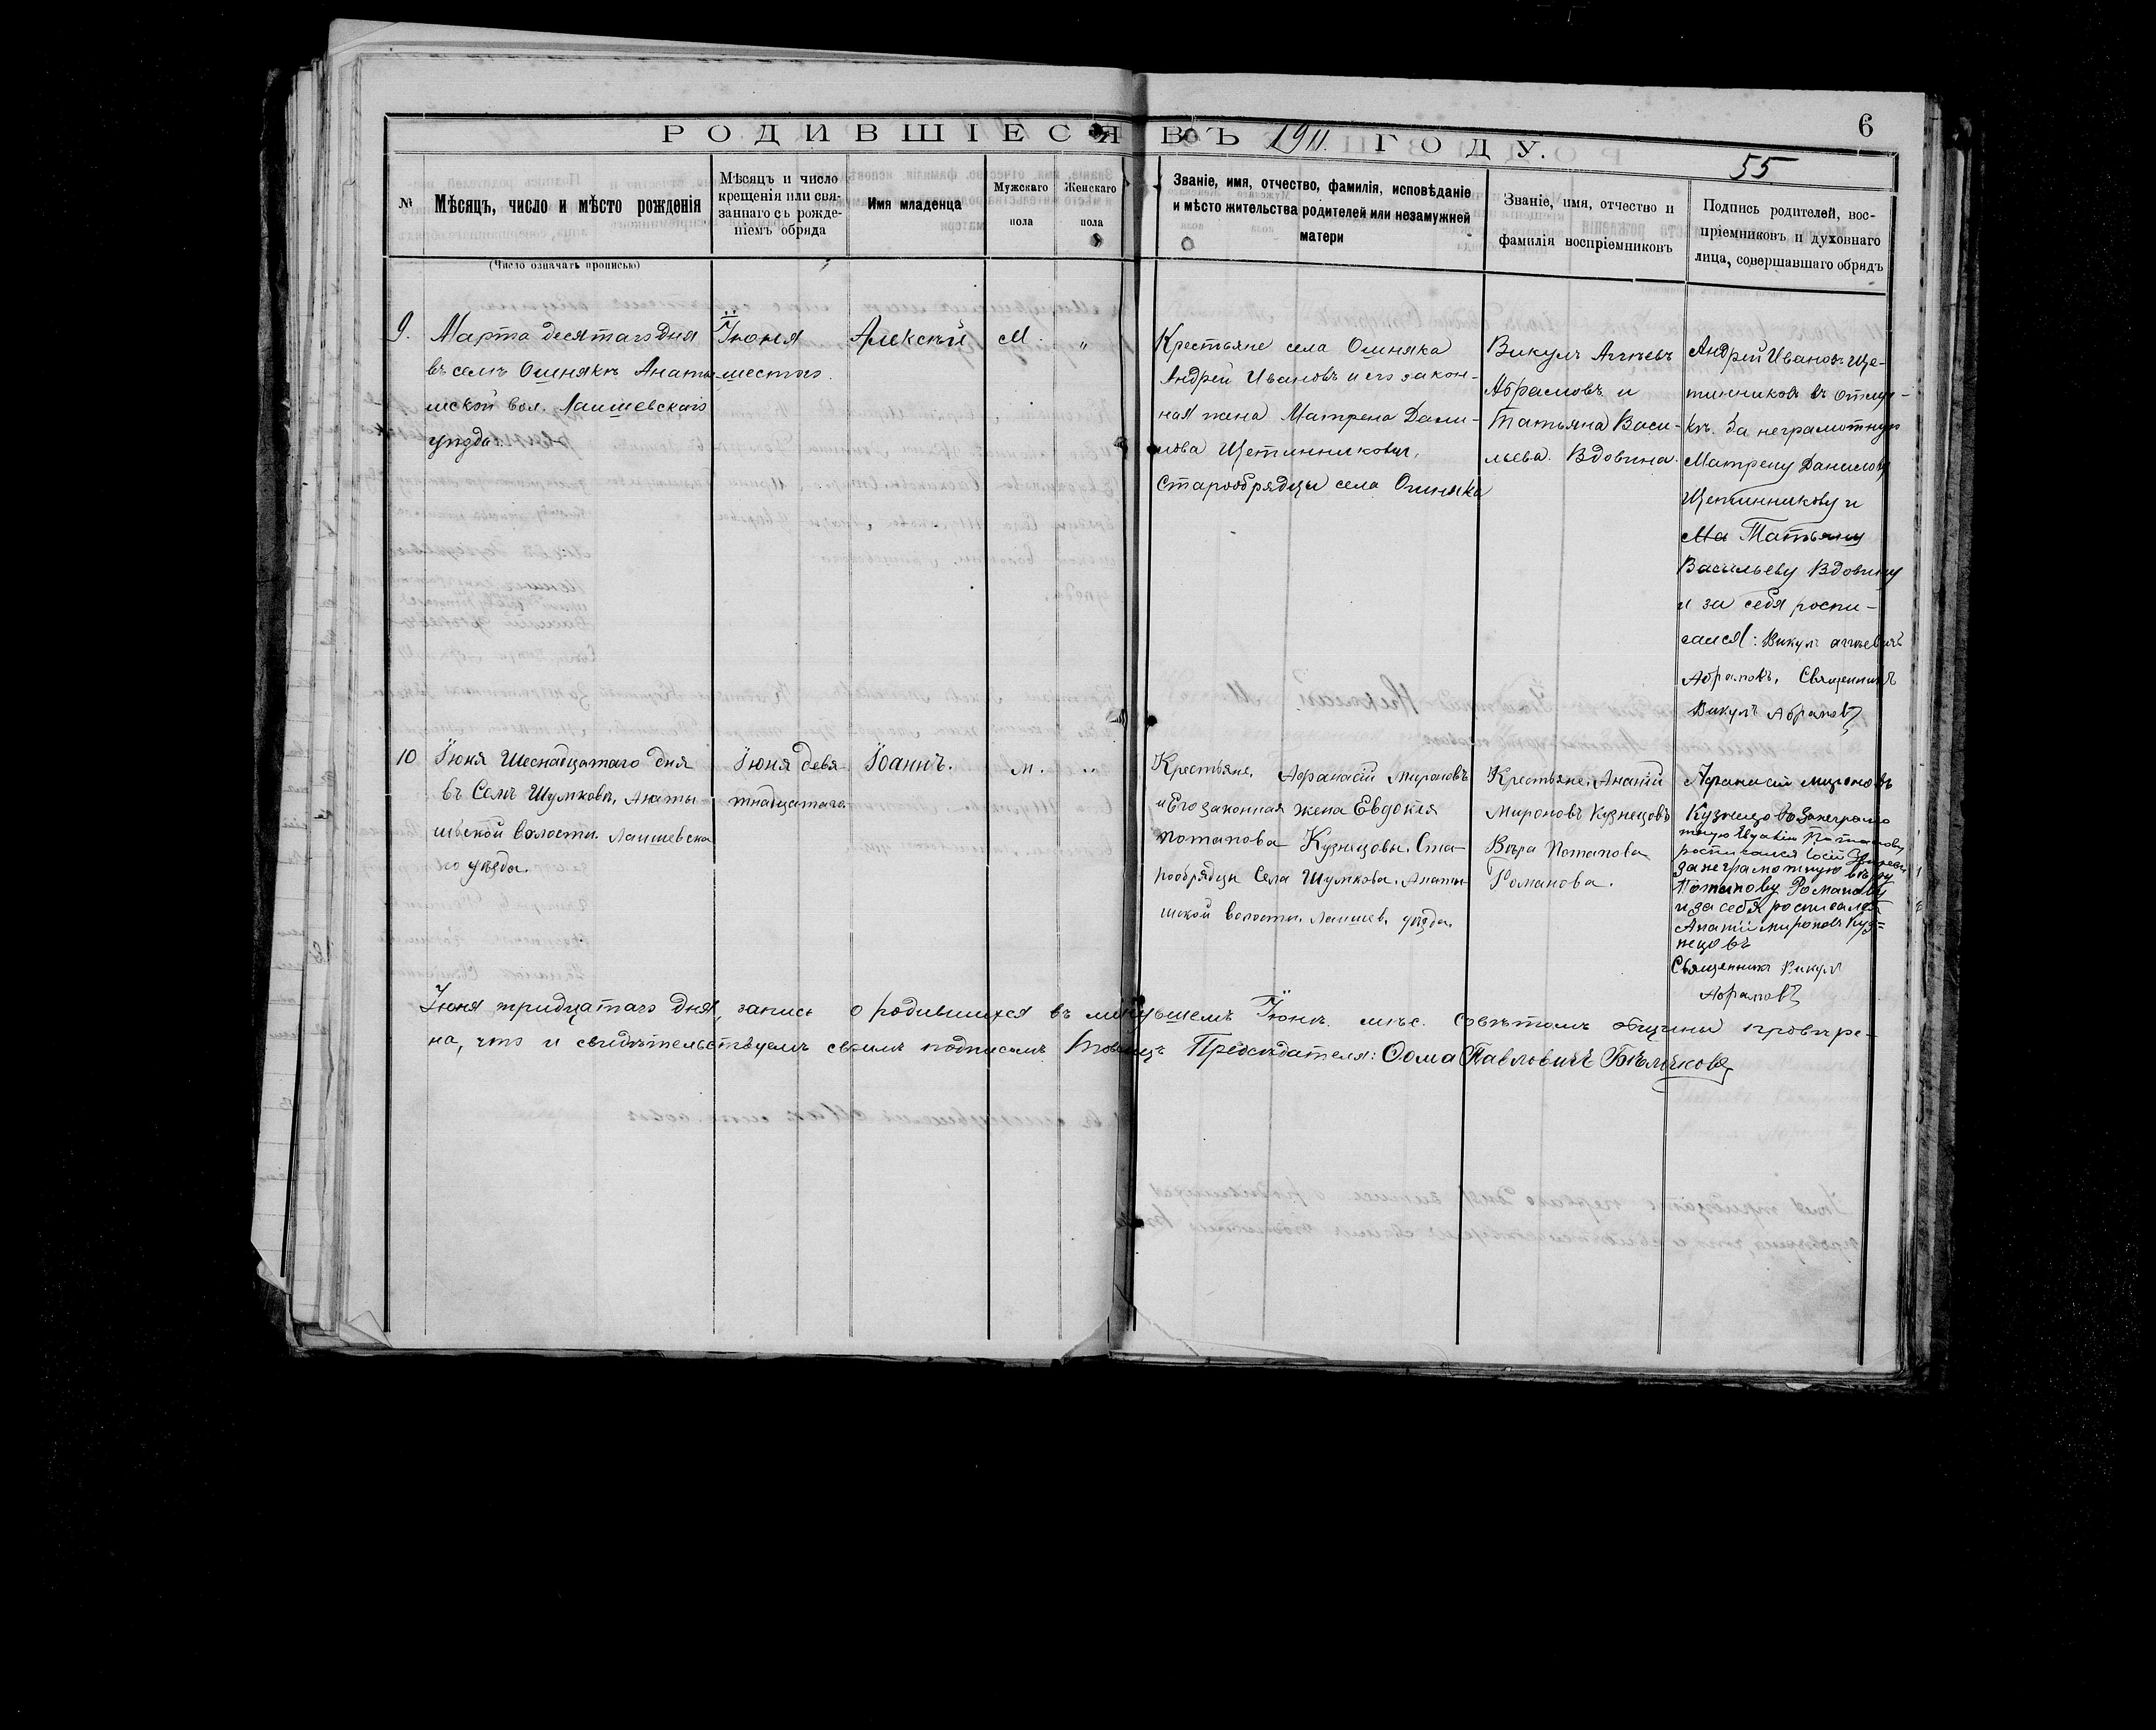 РОДИВШІЕСЯ ВЪ 1911 ГОДУ.
6
55
№
Мѣсяцъ, число и мѣсто рожденія
(Число означать прописью)
Мѣсяцъ и число
крещенія или свя-
заннаго съ рожде-
ніемъ обряда
Имя младенца
Мужскаго
пола
Женскаго
пола
Званіе, имя, отчество, фамилія, исповѣданіе
и мѣсто жительства родителей или незамужней
матери
Званіе, имя, отчество и
фамилія воспріемниковъ
Подпись родителей, вос-
пріемниковъ и духовнаго
лица, совершавшаго обрядъ
9.
Марта десятаго дня
въ селѣ Ошнякѣ Анаты-
шской вол. Лаишевскаго
уѣзда.
Іюня
шестого.
Алексѣй
М.
„
Крестьяне села Ошняка
Андрей Ивановъ и его закон-
ная жена Матрена Дани-
лова Щетинниковы,
Старообрядцы села Ошняка
Викулъ Аггѣевъ
Абрамовъ и
Татьяна Васи-
льева Вдовина.
Андрей Ивановъ Ще-
тинниковъ въ отлуч-
кѣ. За неграмотную
Матрену Данилову
Щетинникову и
Ма Татьяну
Васильеву Вдовину
и за себя роспи-
сался: Викулъ Аггѣевичъ
Абрамовъ, Священникъ
Викулъ Абрамовъ
10
Іюня Шеснадцатаго дня
въ Селѣ Шумковѣ, Анаты-
шьской волости. Лаишевска
го уѣзда.
Іюня девя-
тнадцатаго.
Іоаннъ.
м.
„
Крестьяне, Афанасій Мироновъ
и Его законная жена Евдокія
Потапова Кузнецовы. Ста-
рообрядцы Села Шумкова. Анаты-
шской волости. Лаишев. уѣзда.
Крестьяне. Ананій
Мироновъ Кузнецовъ
Вѣра Потапова
Романова.
Афанасій Мироновъ
Кузнецовъ За неграмо
тную Потапову
росписался
За неграмотную вѣру
Потапову Романову
и за себя росписался
Ананій Мироновъ Куз=
нецовъ
Священникъ Викулъ
Абрамовъ
Іюня тридцатаго дня, запись о родившихся въ минувшемъ Іюнѣ мѣс. Совѣтомъ общины провѣре-
на, что и свидѣтельствуемъ своимъ подписомъ Товарищъ Председателя: Ѳома Павловичъ Бѣляковъ